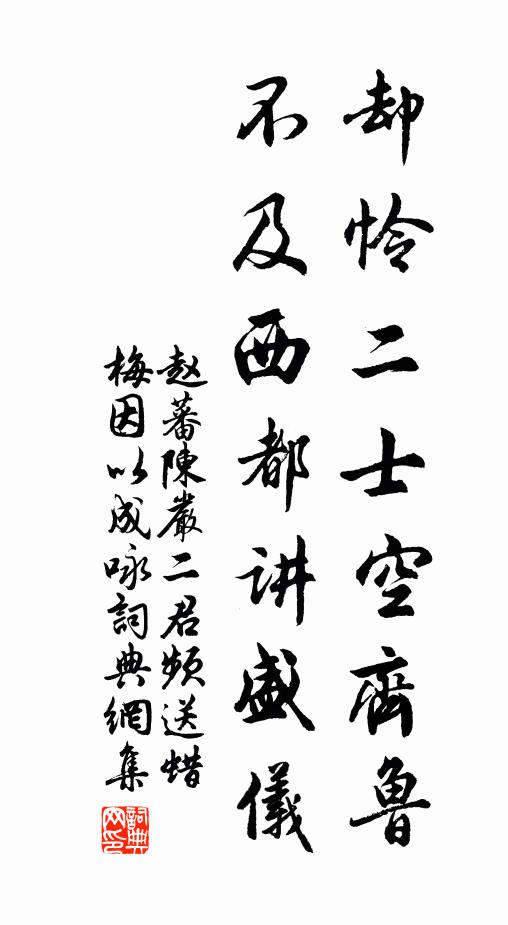 却怜二士空齊魯
不及西都讲盛儀
赵蕃陳嚴二君频送蜡
梅因以成咏詞典網集
詞典网印